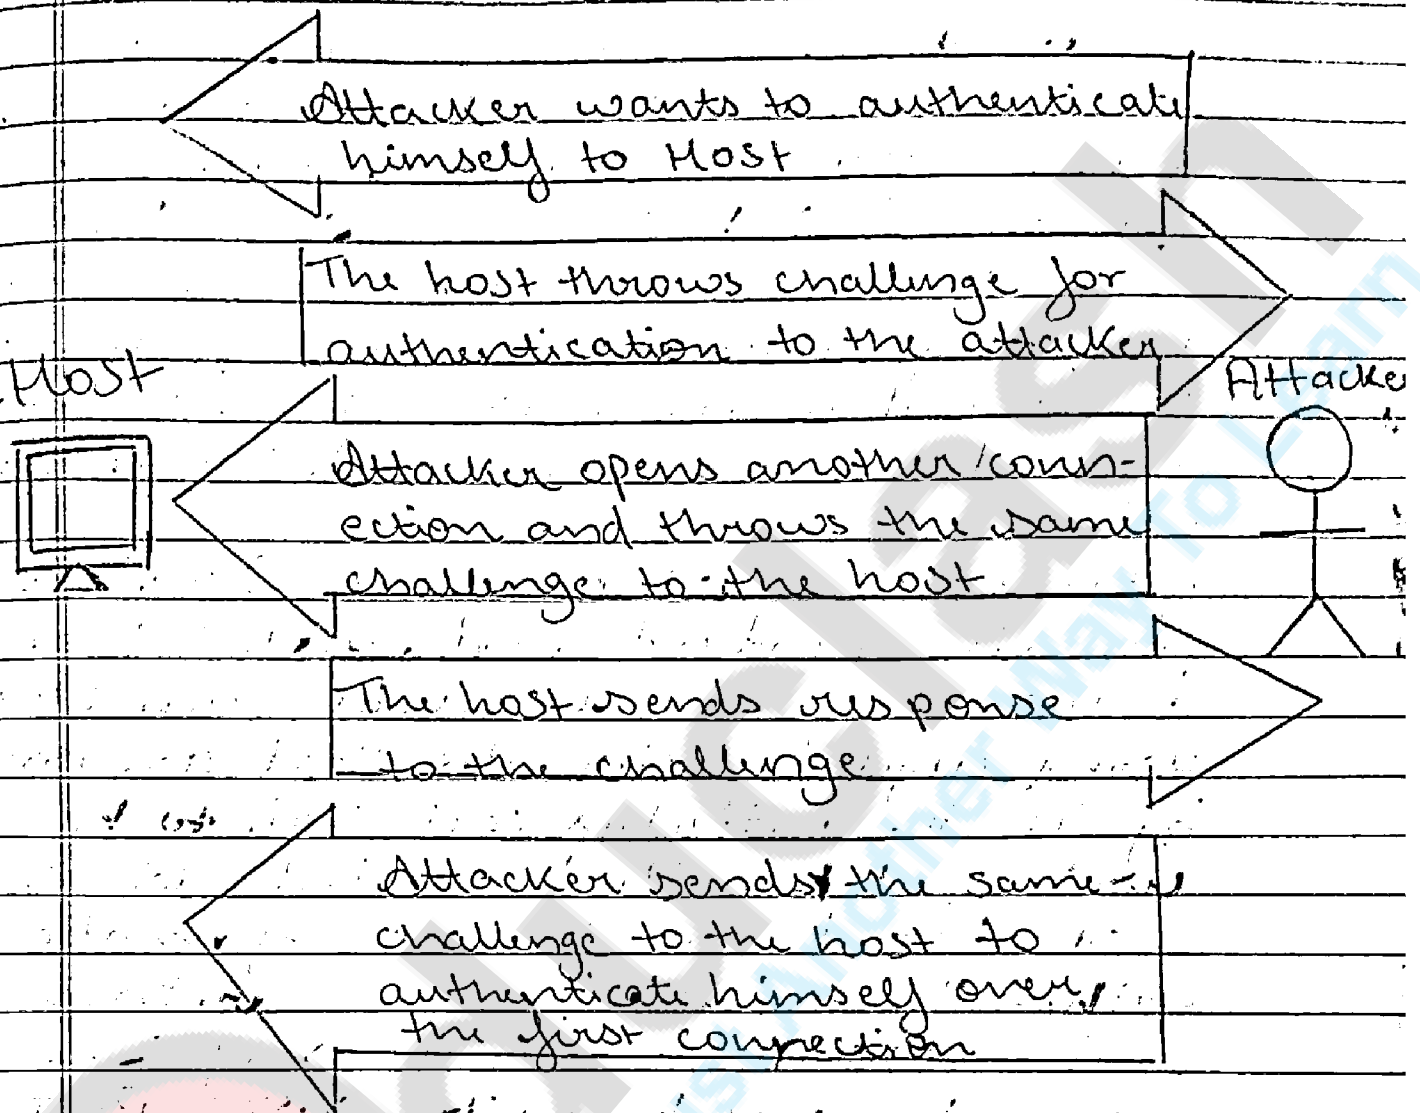 Attacker wants to authenticate
himself to Host
The host throws challenge for
authentication to the attacker
Host
Attacke
Attacker opens another conn-
ection and throws the same
challenge to the host
The host sends response
to the challenge
Attacker sends the same
challenge to the host to
authenticate himself over
the first connection
uclash
Just Another Way To Learn